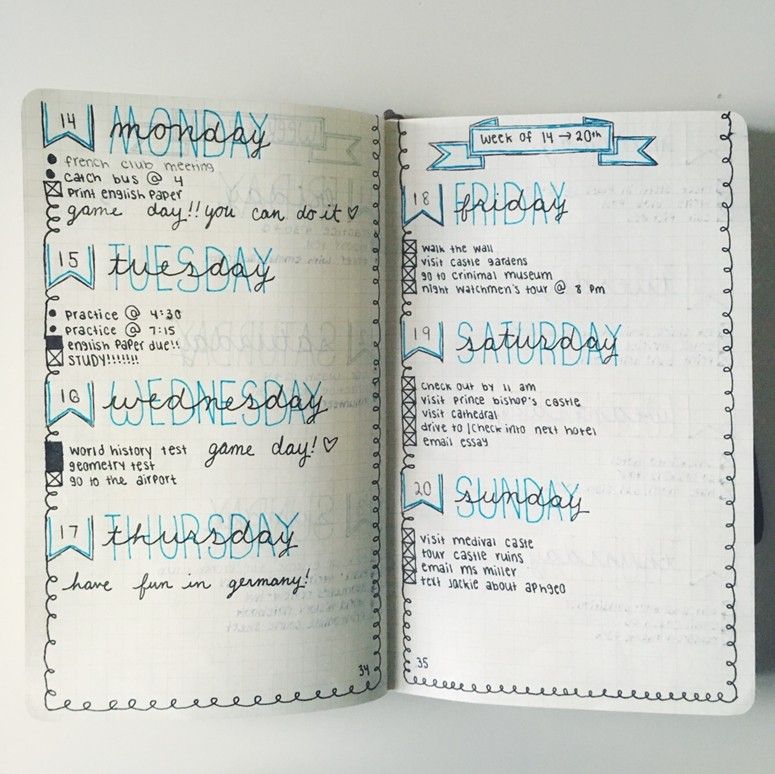 14 MONDAY monday
french club meeting
catch bus @ 4
print english paper
game day!! you can do it ♡
15 TUESDAY tuesday
practice @ 4:30
practice @ 7:15
english paper due!!
STUDY!!!!!!!
16 WEDNESDAY wednesday
world history test game day! ♡
geometry test
go to the airport
17 THURSDAY thursday
have fun in germany!
34
week of 14 → 20th
18 FRIDAY friday
walk the wall
visit castle gardens
go to crinimal museum
night watchmen's tour @ 8 pm
19 SATURDAY saturday
check out by 11 am
visit prince bishop's castle
visit cathedral
drive to/check into next hotel
email essay
20 SUNDAY sunday
visit medival caste
tour castle ruins
email ms miller
text jackie about aphgeo
35